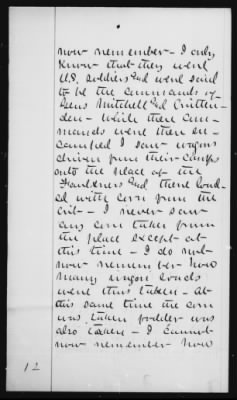 now remember - I only
know that they were
U.S. soldiers and were said
to be the commands of
Gens Mitchell and Critten-
den - While these com-
mands were there en-
camped I saw wagons
driven from their camps
onto the place of the
Faulkners and there load-
ed with corn from the
crib - I never saw
any corn taken from
the place except at
this time - I do not
now remember how
many wagon loads
were thus taken - At
this same time the corn
was taken fodder was
also taken - I cannot
now remember how
12